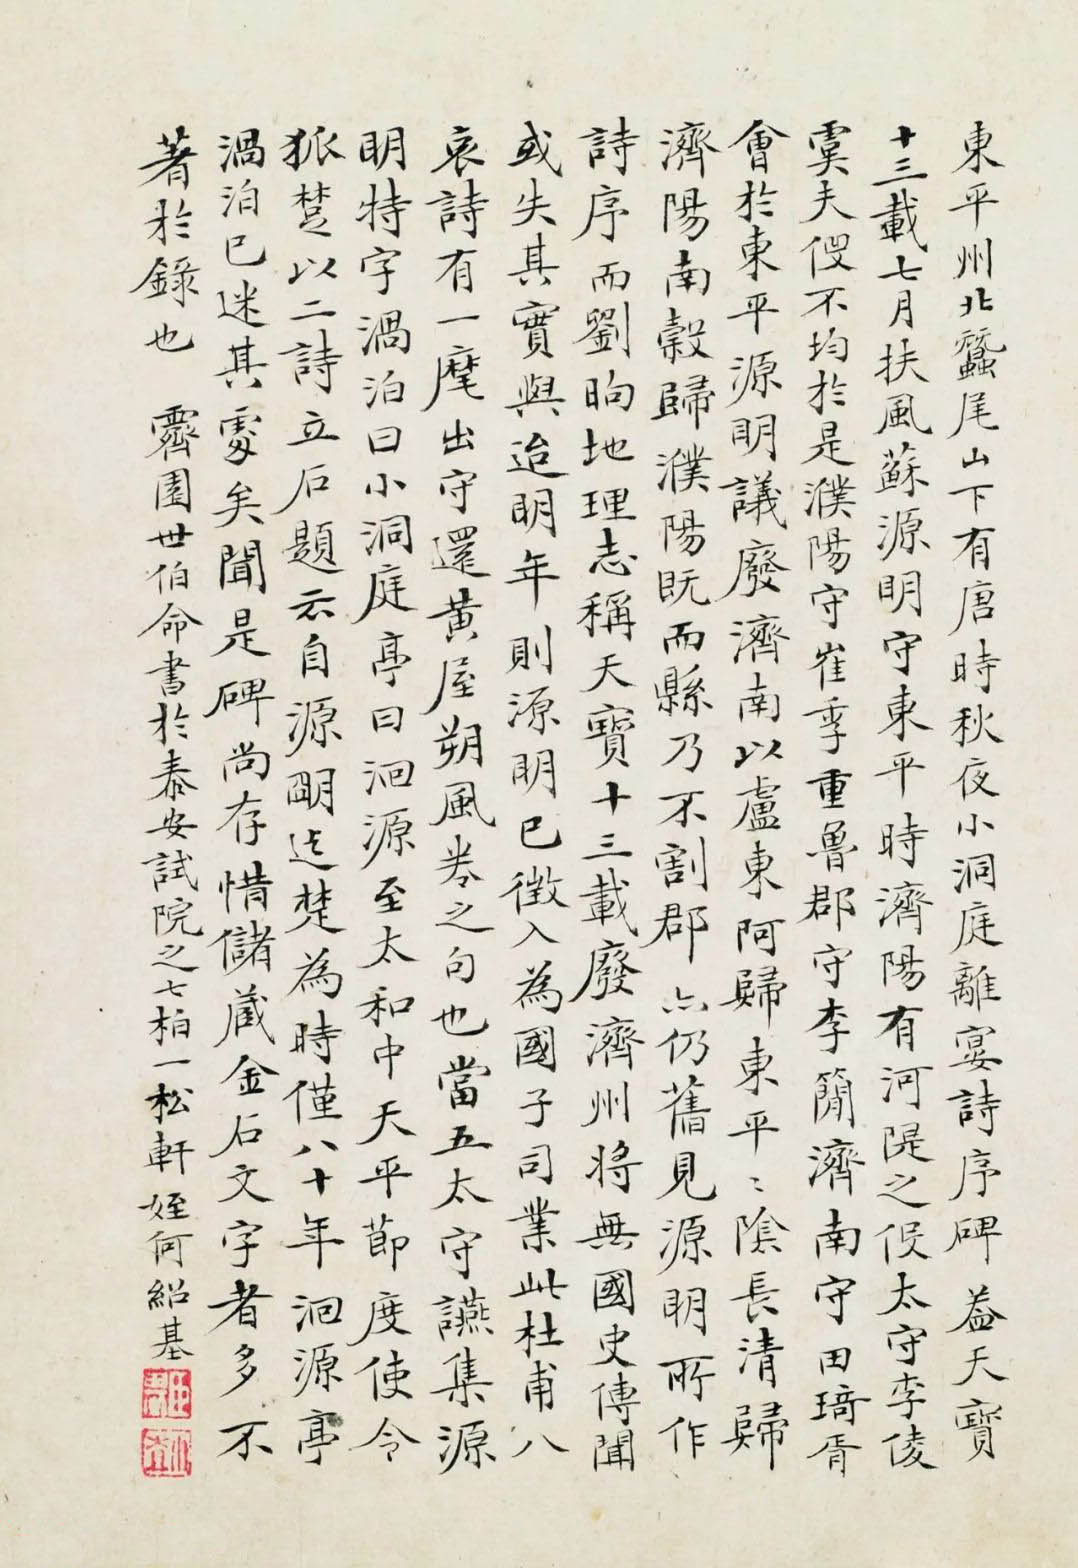 東平州北蠶尾山下有唐時秋夜小洞庭離宴詩序碑蓋天寶
十三載七月扶風蘇源明守東平時濟陽有河隄之役太守李倰
虞夫役不均於是濮陽守崔季重魯郡守李簡濟南守田琦胥
會於東平源明議廢濟南以盧東阿歸東平〻陰長清歸
濟陽南穀歸濮陽既而縣乃不割郡亦仍舊見源明所作
詩序而劉昫地理志稱天寶十三載廢濟州將無國史傳聞
或失其實與迨明年則源明已徵入為國子司業此杜甫八
哀詩有一麾出守還黃屋朔風卷之句也當五太守讌集源
明特字渦泊曰小洞庭亭曰洄源至太和中天平節度使令
狐楚以二詩立石題云自源明迄楚為時僅八十年洄源亭
渦泊已迷其處矣聞是碑尚存惜儲藏金石文字者多不
著於錄也 霽園世伯命書於泰安試院之七柏一松軒姪何紹基